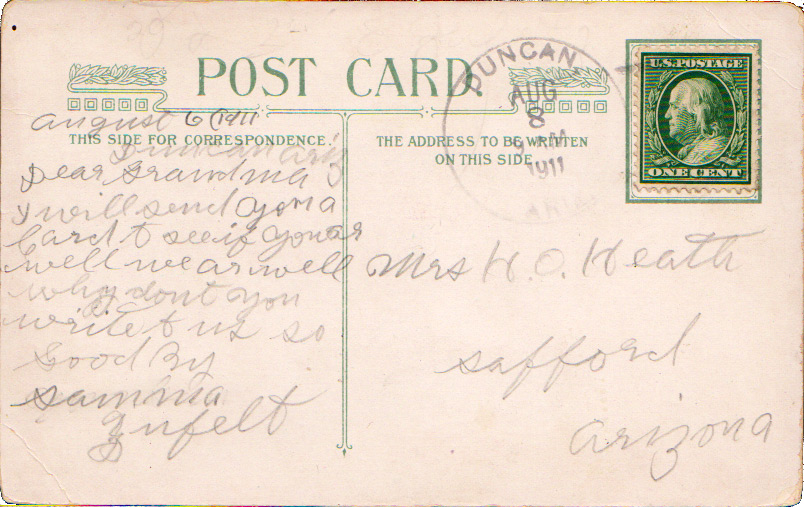 POST CARD
THIS SIDE FOR CORRESPONDENCE.
THE ADDRESS TO BE WRITTEN
ON THIS SIDE
DUNCAN
AUG
8
M
1911
ARIZ
U.S. POSTAGE
ONE CENT
august 6 1911
Duncan ariz
Dear Grandma
I will send you a
Card t see if you ar
well we ar well
why dont you
write t us so
Good By
Samma
Zufelt
Mrs H. O. Heath
Safford
arizona